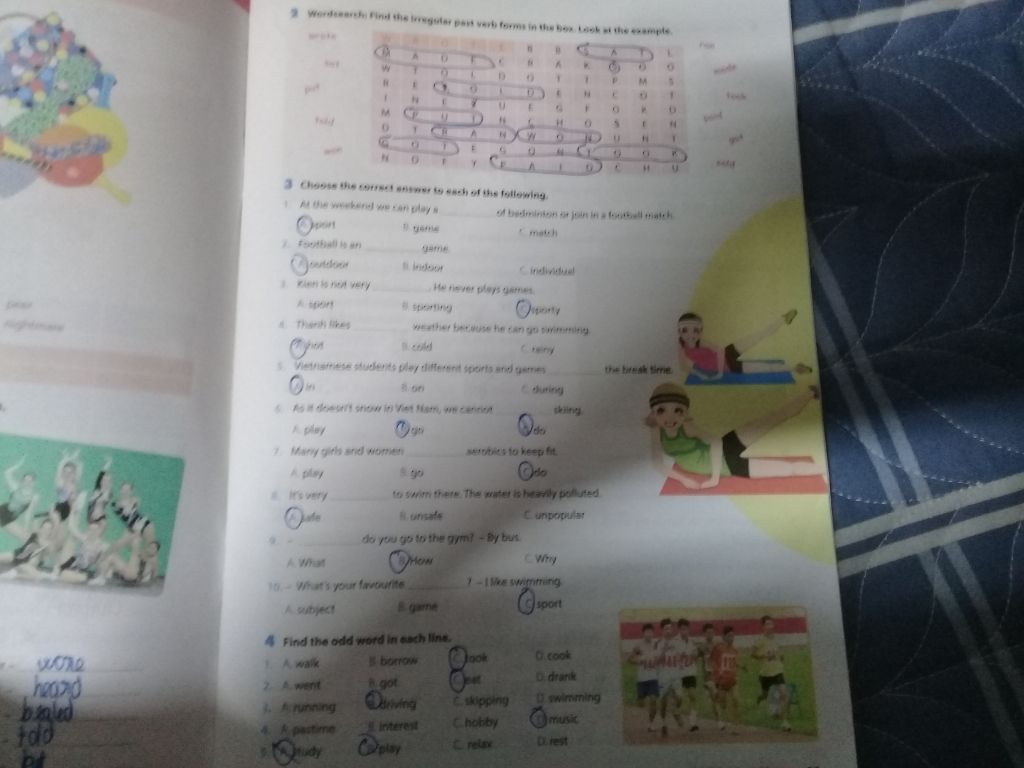 2 Wordsearch: Find the irregular past verb forms in the box. Look at the example.
wrote
put
told
won
ran
made
took
paid
got
3 Choose the correct answer to each of the following.
1. At the weekend we can play a ________ of badminton or join in a football match.
A. sport B. game C. match
2. Football is an ________ game.
A. outdoor B. indoor C. individual
3. Kien is not very ________. He never plays games.
A. sport B. sporting C. sporty
4. Thanh likes ________ weather because he can go swimming.
A. hot B. cold C. rainy
5. Vietnamese students play different sports and games ________ the break time.
A. in B. on C. during
6. As it doesn't snow in Viet Nam, we cannot ________ skiing.
A. play B. go C. do
7. Many girls and women ________ aerobics to keep fit.
A. play B. go C. do
8. It's very ________ to swim there. The water is heavily polluted.
A. safe B. unsafe C. unpopular
9. – ________ do you go to the gym? – By bus.
A. What B. How C. Why
10. – What's your favourite ________? – I like swimming.
A. subject B. game C. sport
4 Find the odd word in each line.
1. A. walk B. borrow C. look D. cook
2. A. went B. got C. eat D. drank
3. A. running B. driving C. skipping D. swimming
4. A. pastime B. interest C. hobby D. music
5. A. study B. play C. relax D. rest
pear
nightmare
wore
heard
told